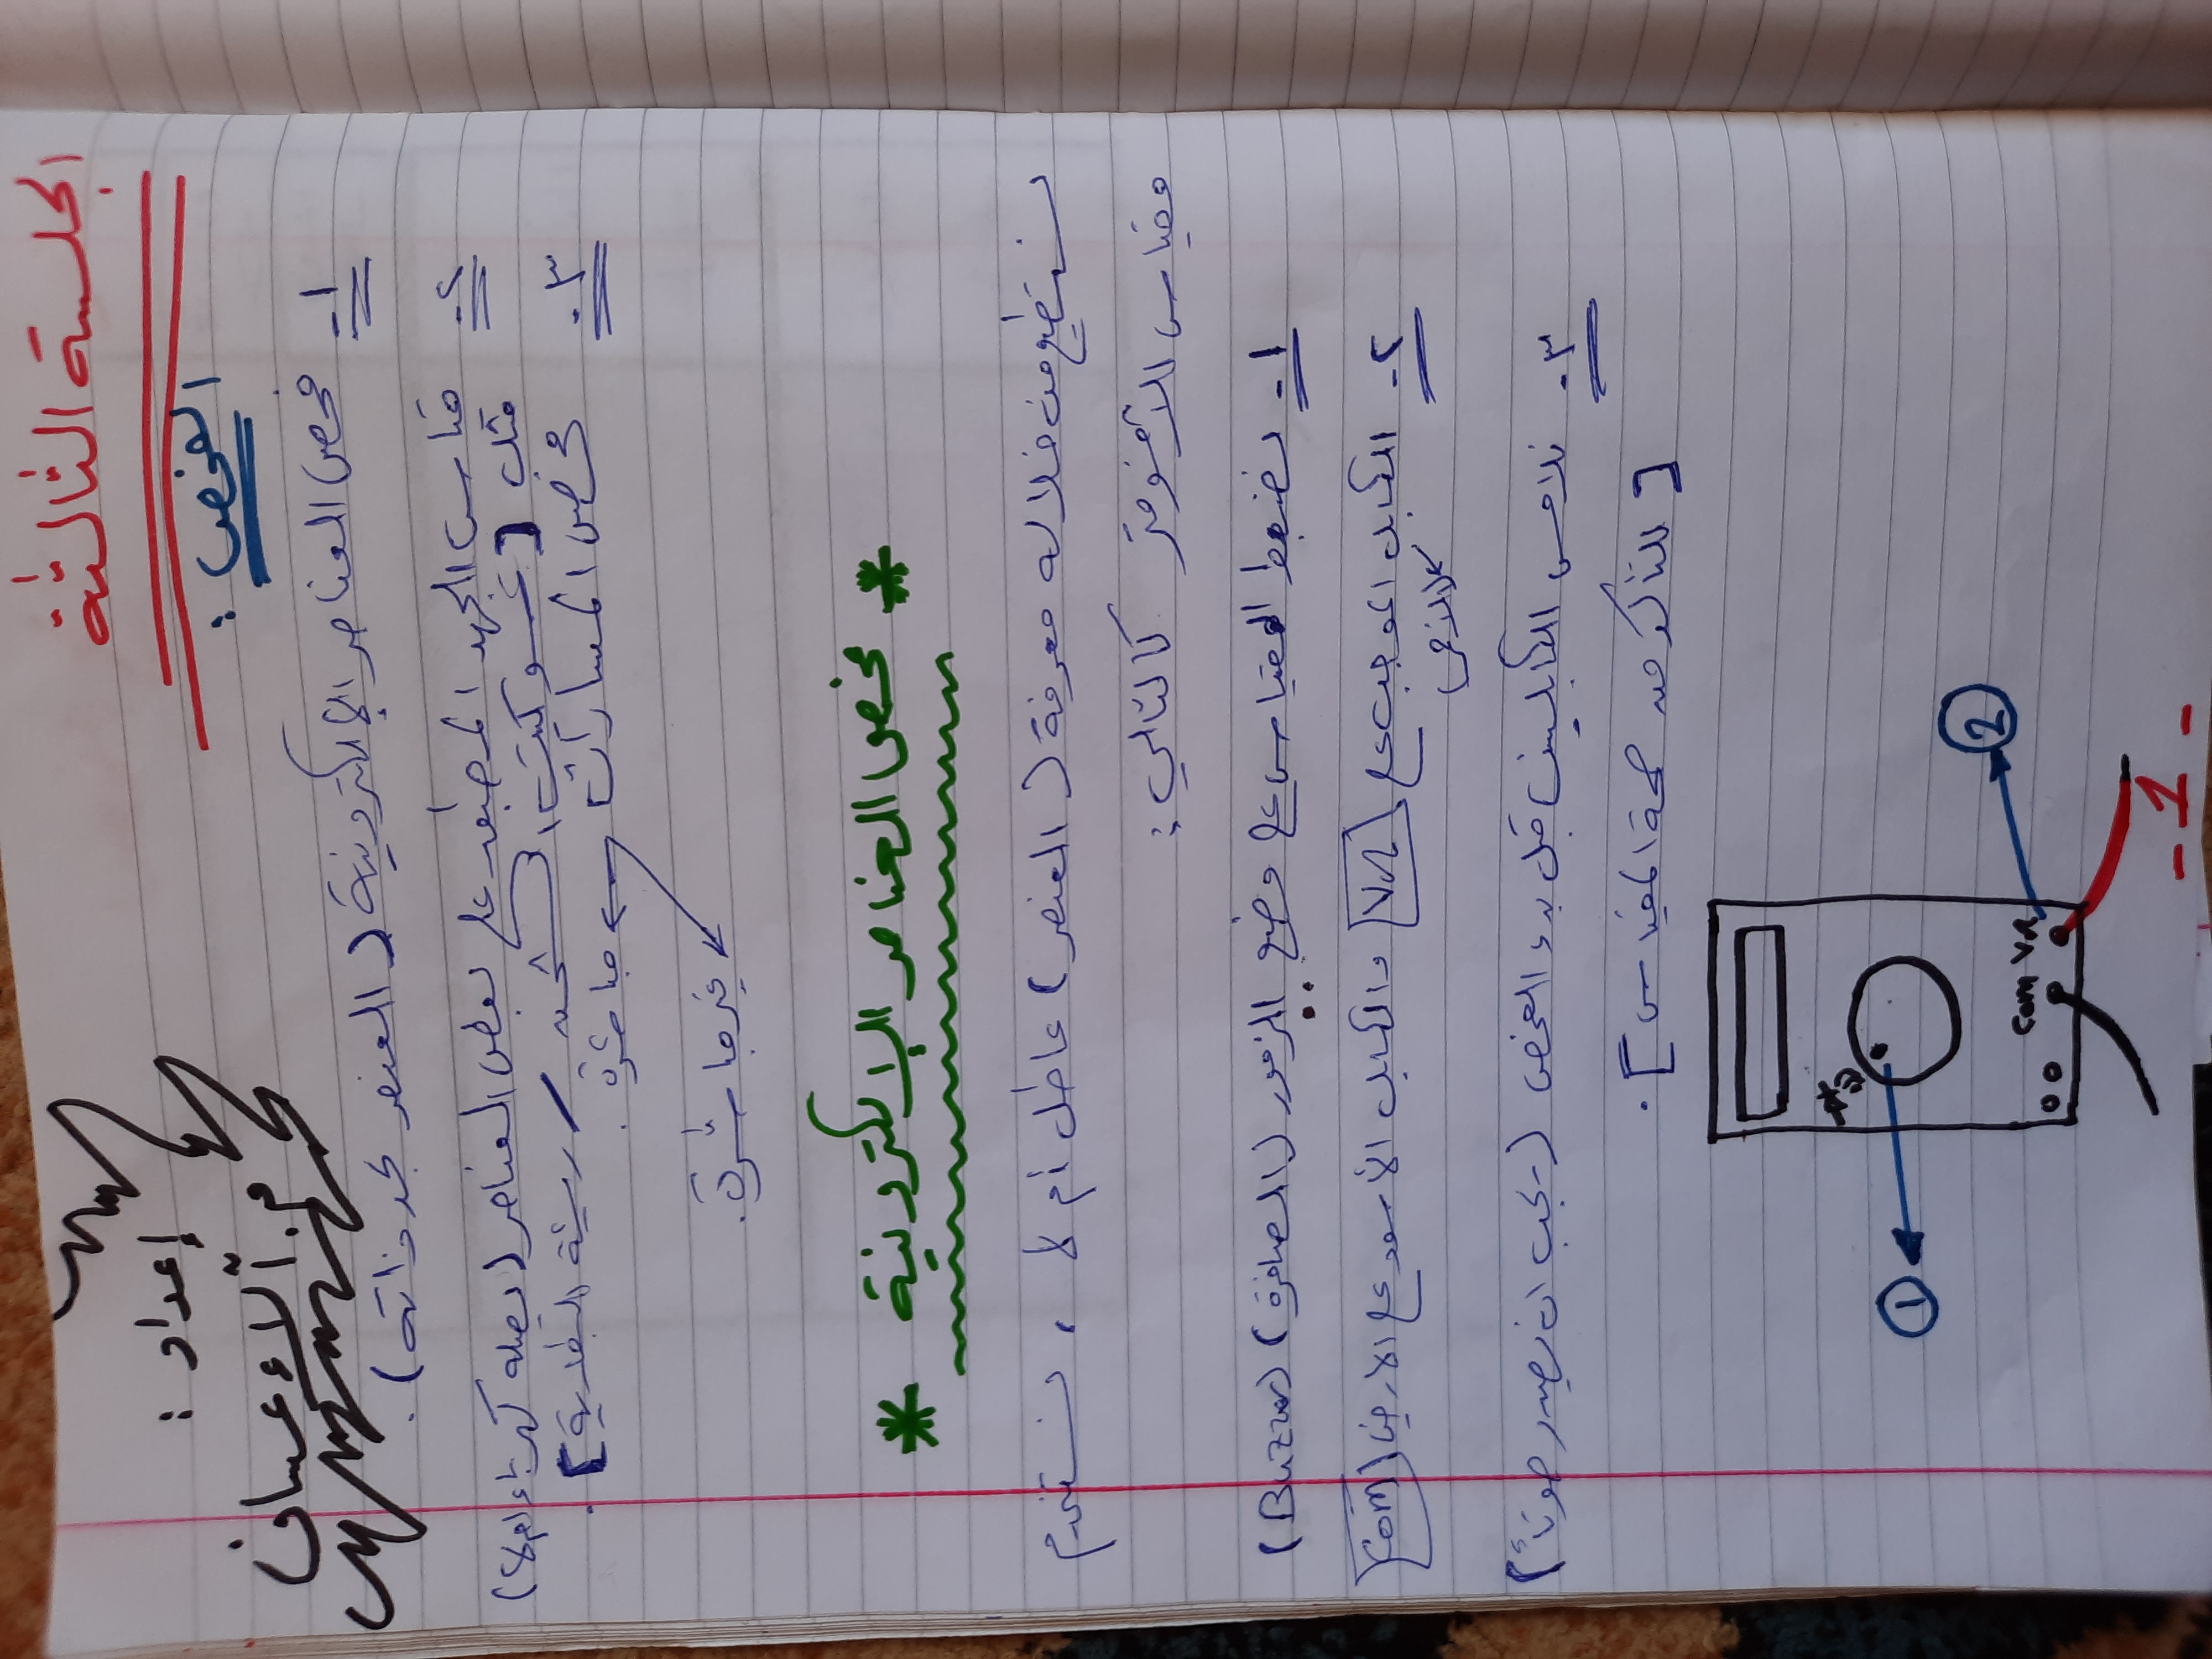 الجلسة الثالثة
إعداد :
م. آلاء عساف
الفحص :
١- فحص العناصر الإلكترونية (العنصر بحد ذاته) .
٢- قياس الجهد المطبق على بعض العناصر (يصله كهرباء أم لا)
مثل [سوكيت الشحن / ريشة البطارية] .
٣- فحص المسارات ← مباشرة .
غير مباشرة .
* فحص العناصر الإلكترونية *
نستطيع من خلاله معرفة (العنصر) عاطل أم لا ، نستخدم
مقياس الآفومتر كالتالي :
١- نضبط المقياس على وضع الزمور (الصافرة) (Buzzer)
٢- الكابل الموجب على VΩ والكابل الأسود على الارضي (com)
الأحمر
٣- نلامس الكابلين قبل بدء الفحص (يجب ان يصدر صوتاً)
[للتأكد من صحة المقياس] .
1
2
Com VΩ
- 1 -